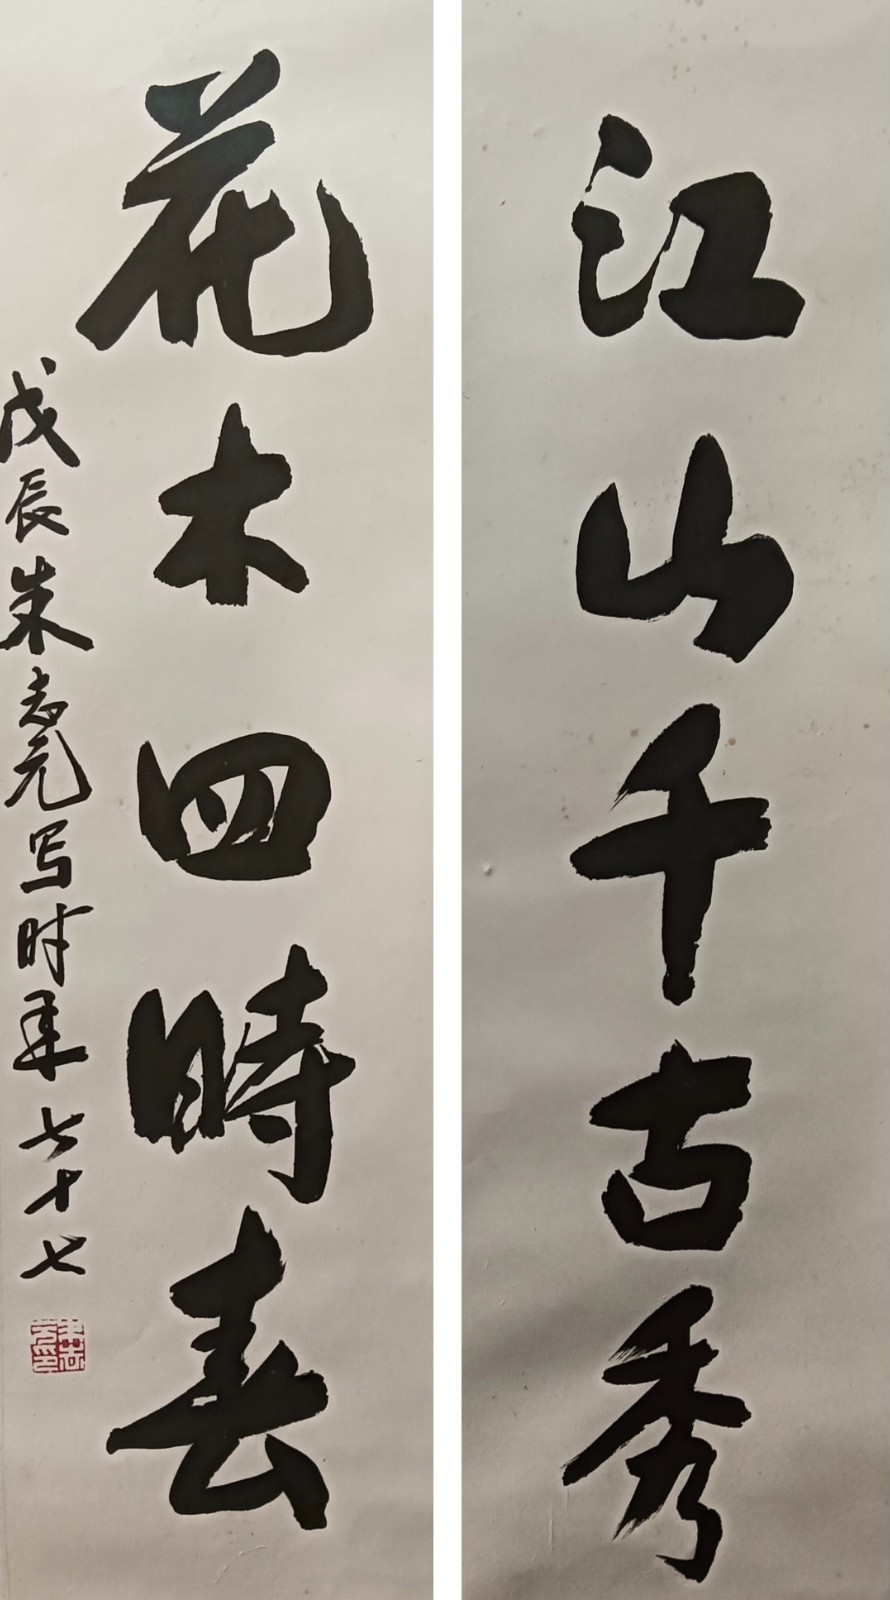 江山千古秀
花木四時春
戊辰朱志元写时年七十七
朱志元印